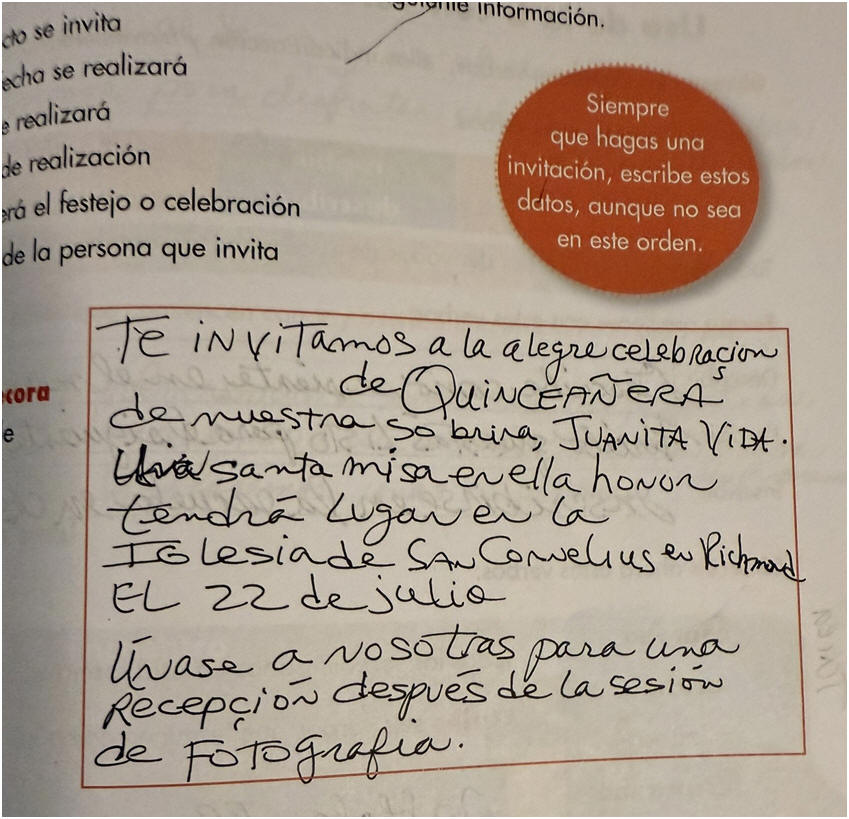 información.
cto se invita
echa se realizará
e realizará
de realización
erá el festejo o celebración
de la persona que invita
Siempre
que hagas una
invitación, escribe estos
datos, aunque no sea
en este orden.
cora
e
Te invitamos a la alegre celebraçion
de QUINCEAÑERA
de nuestra sobrina, JUANITA VIDA.
Una santa misa en ella honor
tendrá lugar en la
Iglesia de SAN Cornelius en Richmond
EL 22 de julio
Únase a nosotras para una
Recepçión después de la sesión
de FOTOgrafia.